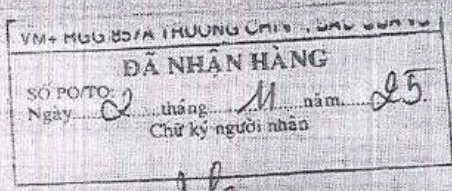 VM+ HGG 85/A TRUONG CHINH, BAC QUANG
ĐÃ NHẬN HÀNG
SỐ PO/TO:
Ngày 02 tháng 11 năm 25
Chữ ký người nhân